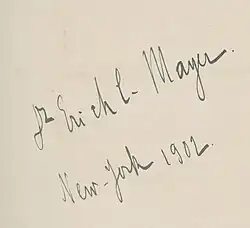 Dr Erich C. Mayer.
New-York 1902.